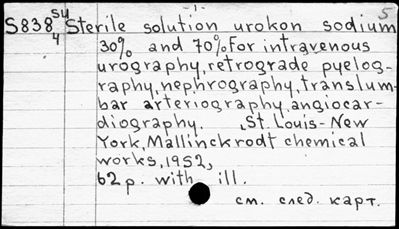 -1-
5
S838 su Sterile solution urokon sodium
4 30% and 70% For intravenous
urography, retrograde pyelog-
raphy, nephrography, translum-
bar arteriography, angiocar-
diography. St. Louis-New
York, Mallinckrodt chemical
works, 1952,
62 p. with ill.
см. след. карт.